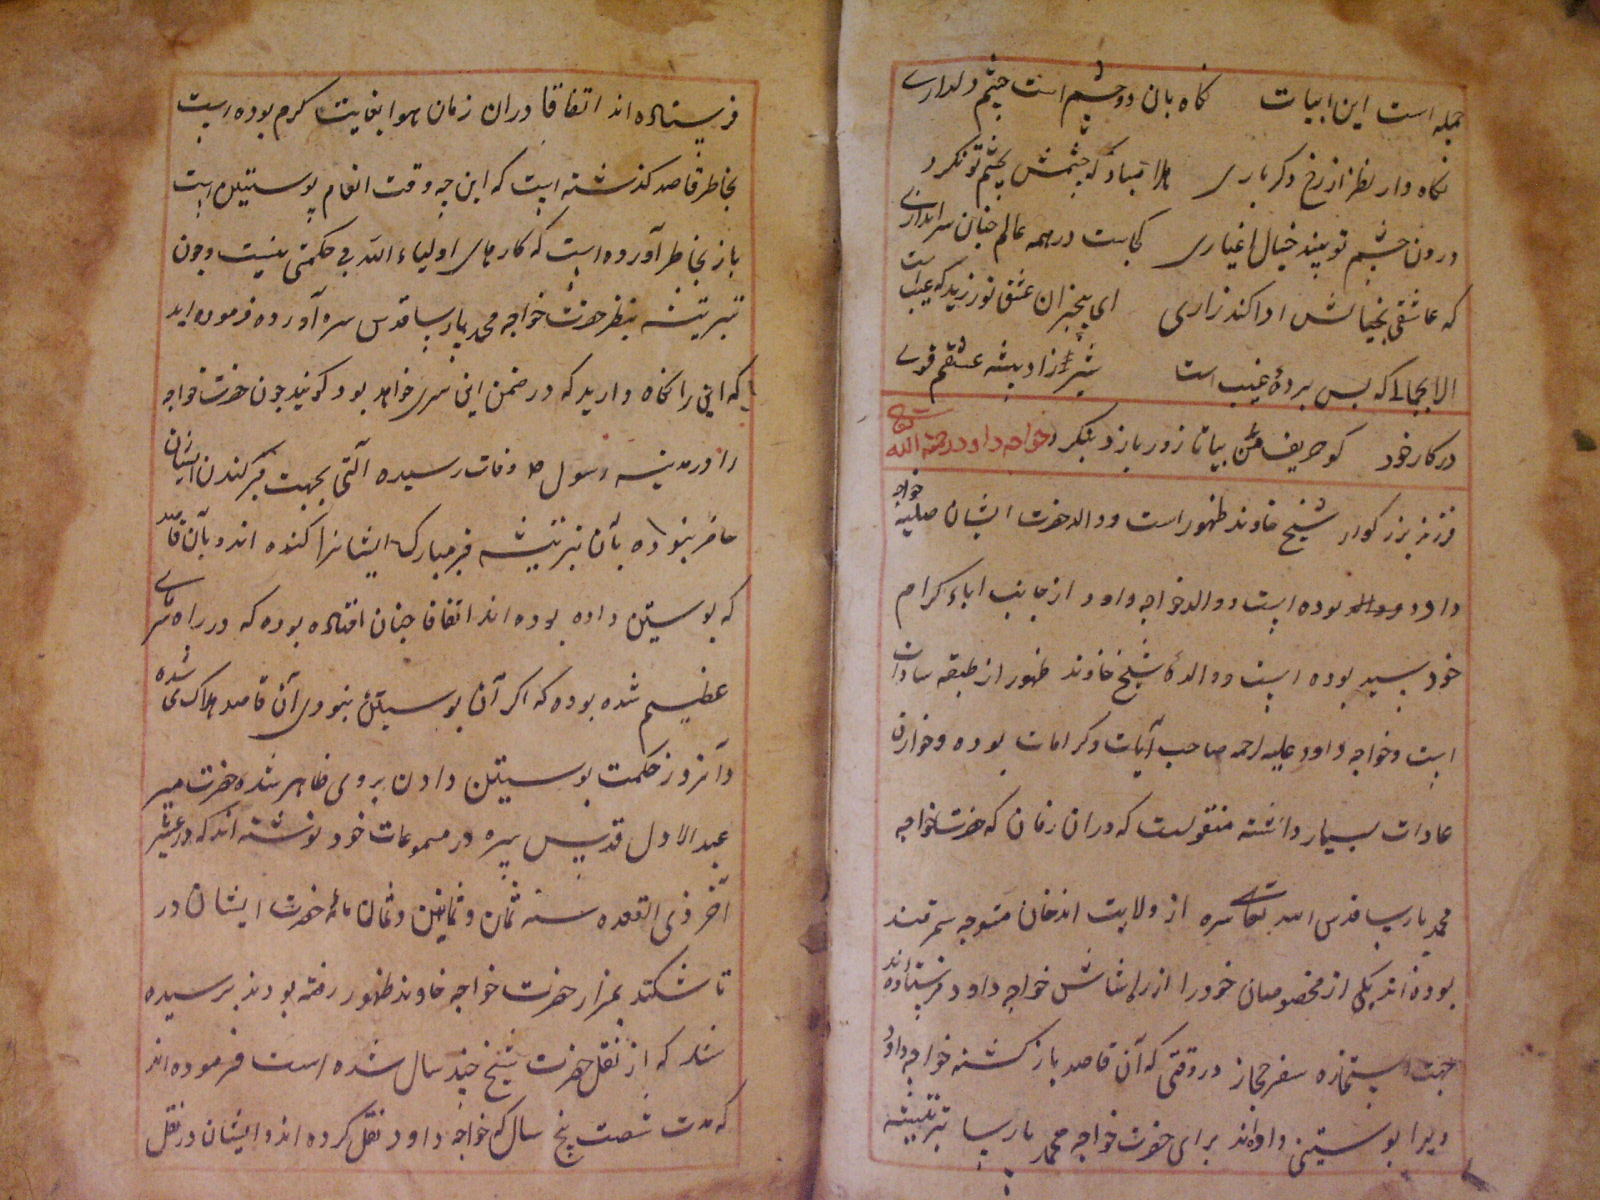 جمله است این ابیات نگاه بان دو چشم است چشم دلدارے
نگاه دار نظر از رخ دگر یاری هلا مباد که چشمش بچشم تو نگرد
درون چشم تو بیند خیال اغیاری کجاست در همه عالم چنان سراندازے
که عاشقی بخیالش ادا کند زاری ای بیخبران عشق نورزید که عیب است
الا بجمالے که پس پردهٔ غیب است شیر نر از بیشه عشقم قوے
در کار خود کو حریف من بیا تا زور بازو بنگرد خواجه داود رحمة الله
فرزند بزرگوار شیخ خاوند ظهور است و والد حضرت ایشان صبیه خواجه
داود بوده است و والد خواجه داود از جانب اباء کرام
خود سید بوده است و والدهٔ شیخ خاوند ظهور از طبقه سادات
است و خواجه داود علیه الرحمه صاحب آیات و کرامات بوده و خوارق
عادات بسیار داشته منقولست که دران زمان که حضرت خواجه
محمد پارسا قدس الله تعالے سره از ولایت اندخان متوجه سمرقند
بوده اند یکی از مخصوصان خود را از راه شاش خواجه داود فرستاده اند
جهت استجازه سفر حجاز در وقتی که آن قاصد باز گشته خواجه داود
ویرا پوستینی داده‌اند برای حضرت خواجه محمد پارسا تبر تیشه
فرستاده اند اتفاقا دران زمان هوا بغایت گرم بوده است
بخاطر قاصد گذشته است که این چه وقت انعام پوستین است
باز بخاطر آورده است که کارهای اولیاء الله بی حکمتی نیست و چون
تبر تیشه بنظر حضرت خواجه محمد پارسا قدس سره آورده فرموده اند
که این را نگاه دارید که در ضمن این سری خواهد بود گویند چون حضرت خواجه
را در مدینه رسول ص وفات رسیده آلتی بجهت قبر کندن ایشان
حاضر نبوده بآن تبر تیشه قبر مبارک ایشانرا کنده اند و بآن قاصد
که پوستین داده بوده اند اتفاقا چنان افتاده بوده که در راه سرمای
عظیم شده بوده که اگر آن پوستین نبودی آن قاصد هلاک می شده
و آنروز حکمت پوستین دادن بروی ظاهر شده حضرت میر
عبد الاول قدس سره در مسموعات خود نوشته اند که در عشر
آخر ذی القعده سنه ثمان و ثمانین و ثمان مائه حضرت ایشان در
تاشکند بمزار حضرت خواجه خاوند ظهور رفته بودند پرسیده
شد که از نقل حضرت شیخ چند سال شده است فرموده اند
که مدت شصت پنج سال که خواجه داود نقل کرده اند و ایشان در نقل